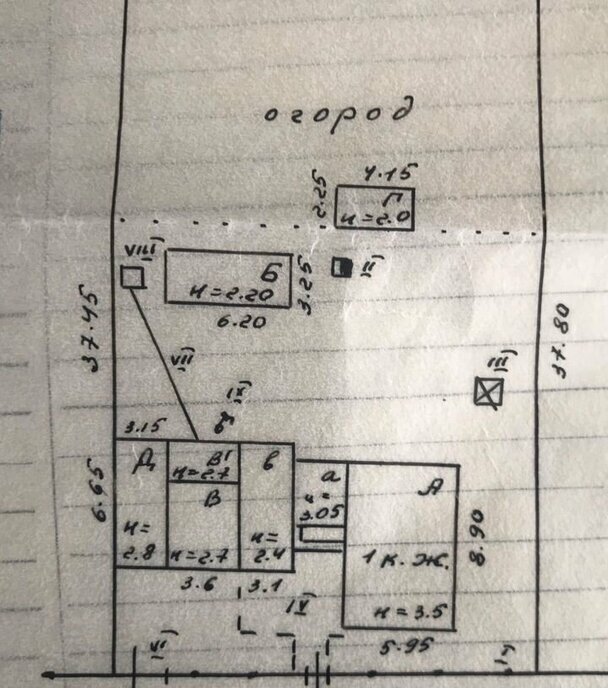 огород
4.15
2.25
Г
н=2.0
VIII)
II)
Б
н=2.20
3.25
6.20
37.45
37.80
VII)
III)
IX)
3.15
6.65
Д
В¹
н=2.7
в
а
А
В
н=
3.05
н=
2.8
н=2.7
н=
2.4
1 к. ж.
8.90
3.6
3.1
IV)
н=3.5
5.95
VI)